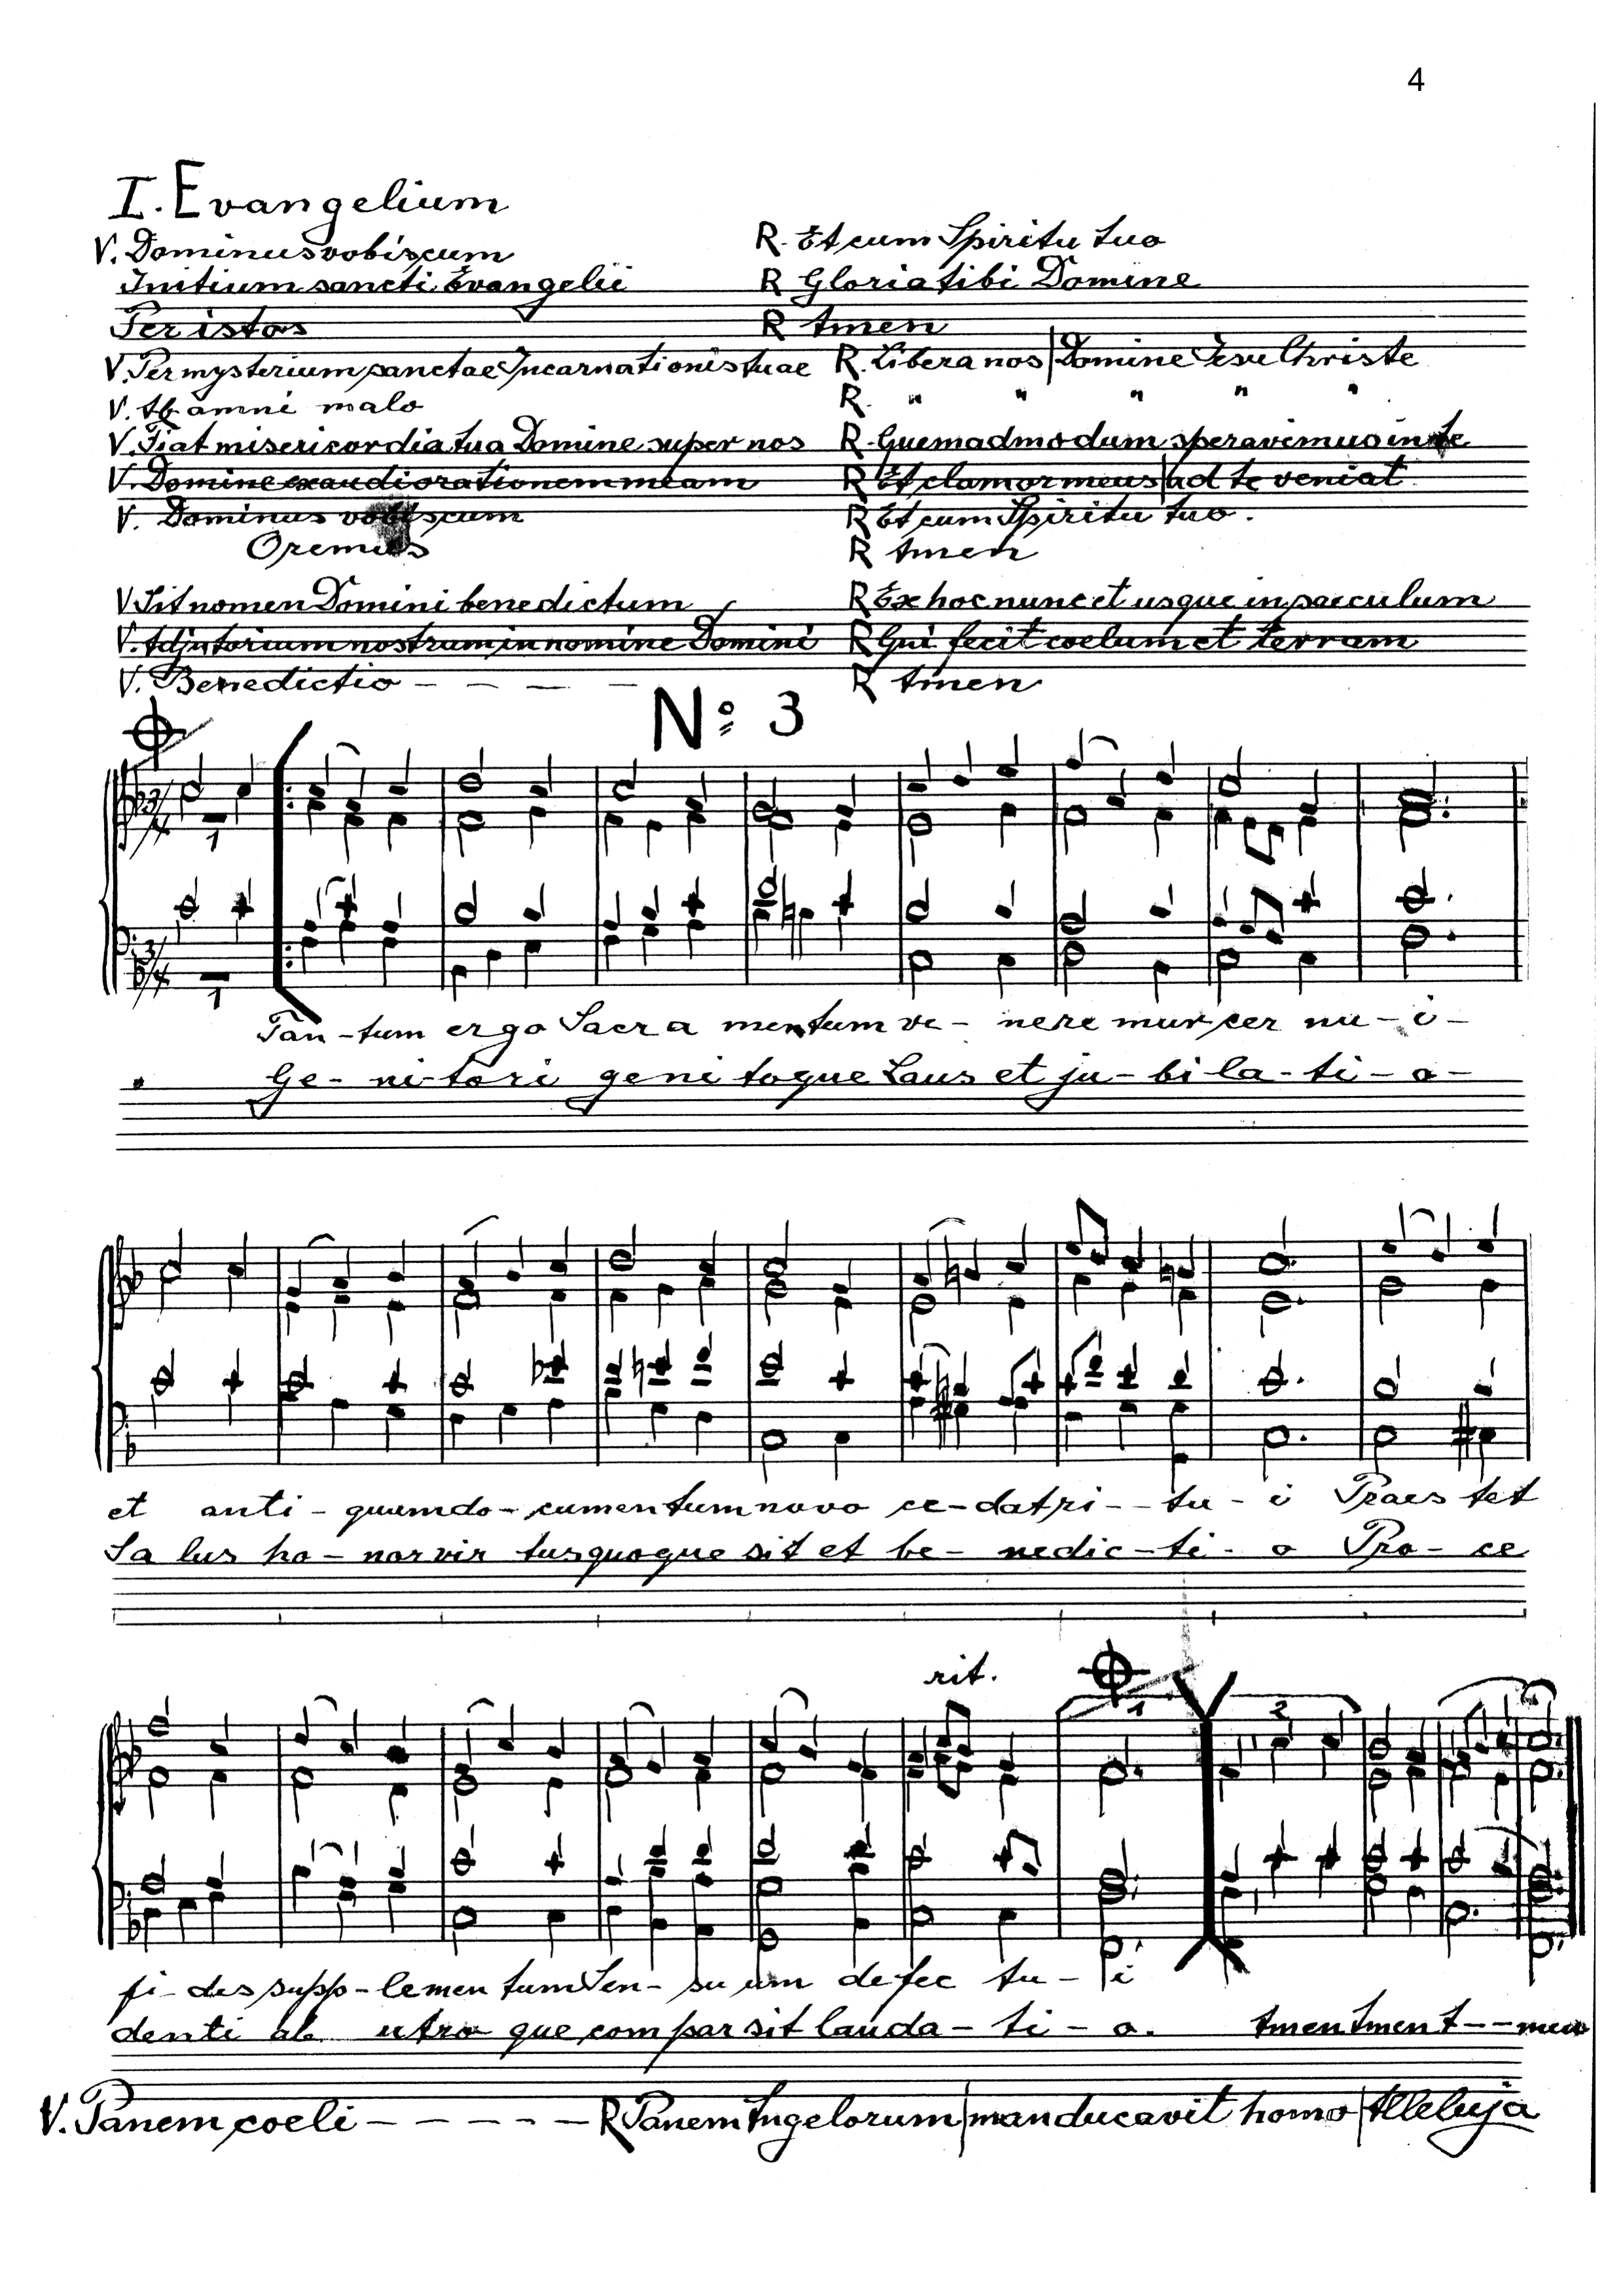 4
I. Evangelium
V. Dominus vobiscum R. Et cum Spiritu tuo
Initium sancti Evangelii R Gloria tibi Domine
Per istos R Amen
V. Per mysterium sanctae Incarnationis tuae R. Libera nos | Domine Jesu Christe
V. Ab omni malo R. " " " " "
V. Fiat misericordia tua Domine super nos R. Quemadmodum speravimus in te
V. Domine exaudi orationem meam R Et clamor meus | ad te veniat
V. Dominus vobiscum R Et cum Spiritu tuo.
Oremus R Amen
V Sit nomen Domini benedictum R Ex hoc nunc et usque in saeculum
V. Adjutorium nostrum in nomine Domini R Qui fecit coelum et terram
V. Benedictio - - - - R Amen
No: 3
3/4
3/4
Tan - tum ergo Sacra mentum ve - nere mur cer nu - i -
Ge - ni - tori geni toque Laus et ju - bi la - ti - o -
et anti - quum do - cumentum novo ce - dat ri - - tu - i Praes tet
Sa lus ho - nor vir tus quoque sit et be - nedic - ti - o Pro - ce
rit.
1 2
fi - des supp - lemen tum Sen - su um defec tu - i
denti ab utro que compar sit lauda - ti - o. Amen Amen A - - men
V. Panem coeli - - - - - R Panem Angelorum | manducavit homo | Alleluja